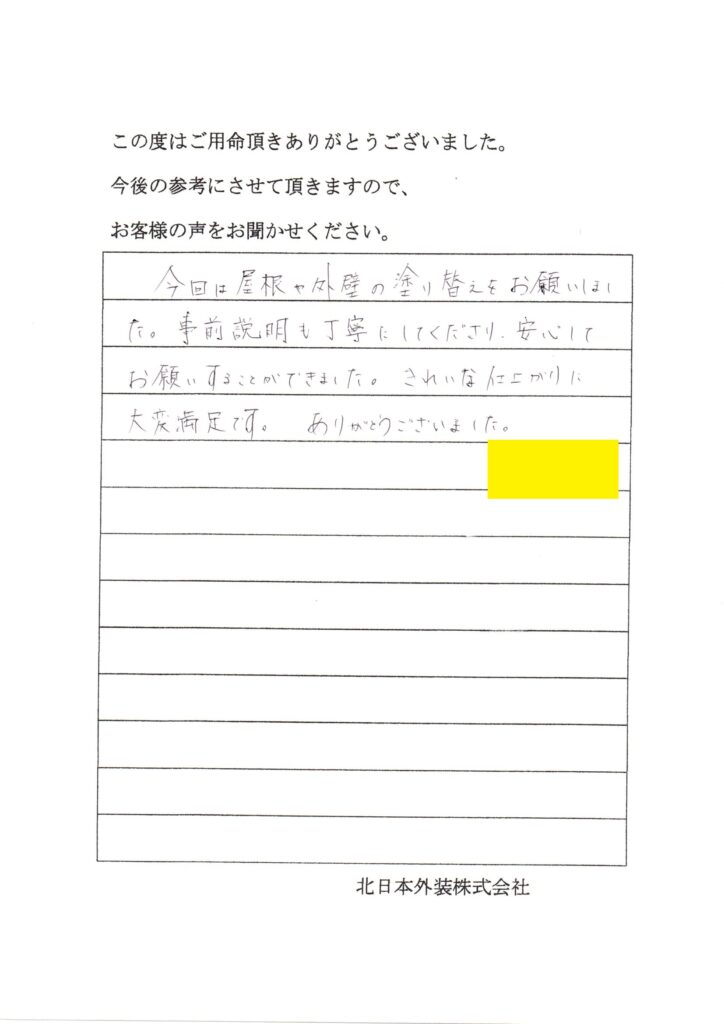 この度はご用命頂きありがとうございました。
今後の参考にさせて頂きますので、
お客様の声をお聞かせください。
今回は屋根や外壁の塗り替えをお願いしまし
た。事前説明も丁寧にしてくださり、安心して
お願いすることができました。きれいな仕上がりに
大変満足です。 ありがとうございました。
北日本外装株式会社